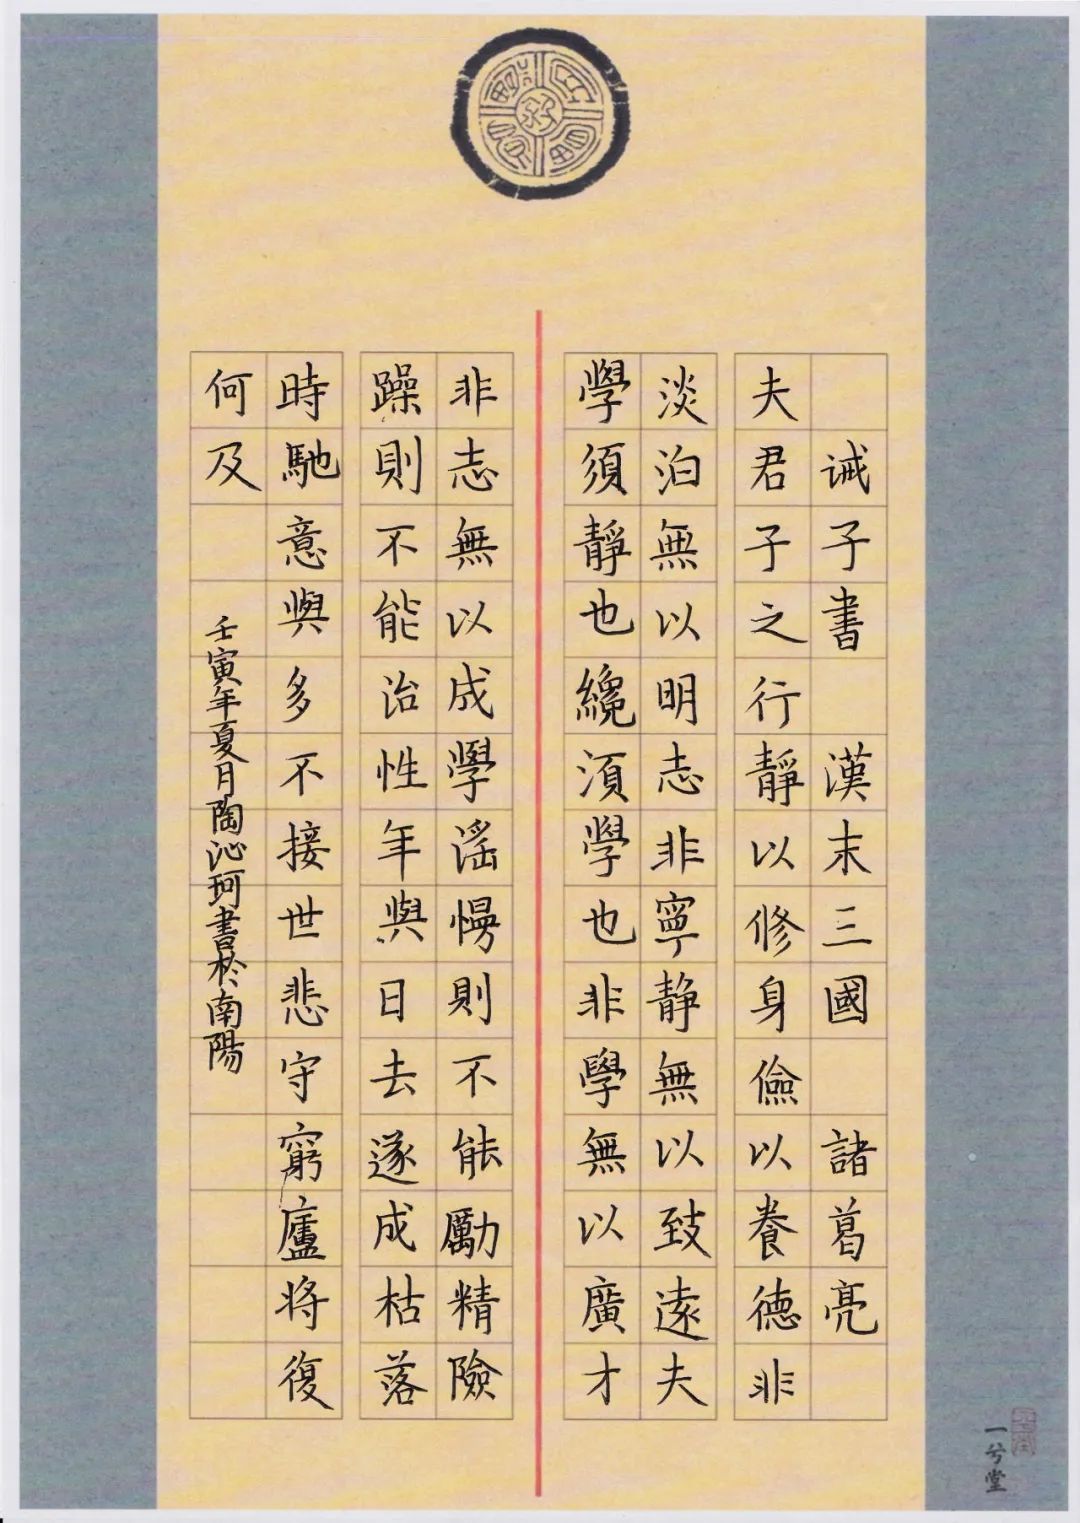 诫子書 漢末三國 諸葛亮
夫君子之行靜以修身儉以養德非
淡泊無以明志非寧静無以致遠夫
學須靜也纔須學也非學無以廣才
非志無以成學滛慢則不能勵精險
躁則不能治性年與日去遂成枯落
時馳意與多不接世悲守窮廬将復
何及
壬寅年夏月陶沁珂書於南陽
一兮堂